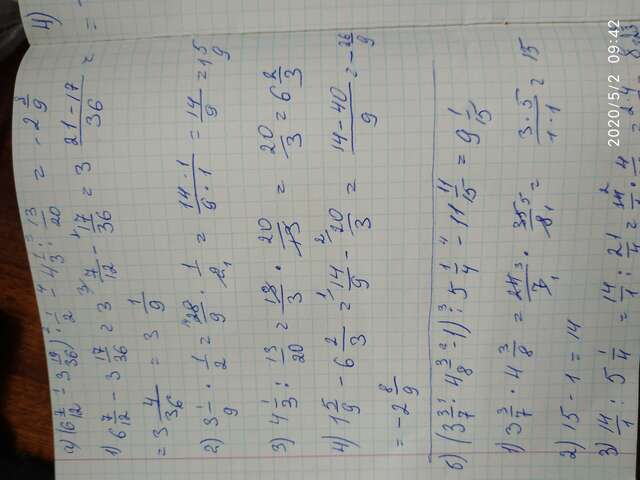 а) (6 7/12 - 3 19/36) : 1/2 - 4 1/3 : 13/20 = -2 8/9
1) 6 7/12 - 3 17/36 = 3 7/12 - 17/36 = 3 21-17/36 =
= 3 4/36 = 3 1/9
2) 3 1/9 · 1/2 = 28/9 · 1/2 = 14·1/9·1 = 14/9 = 1 5/9
3) 4 1/3 : 13/20 = 13/3 · 20/13 = 20/3 = 6 2/3
4) 1 5/9 - 6 2/3 = 14/9 - 20/3 = 14-40/9 = -26/9
= -2 8/9
б) (3 3/7 · 4 3/8 - 1) : 5 1/4 - 11 11/15 = 9 1/15
1) 3 3/7 · 4 3/8 = 24/7 · 35/8 = 3·5/1·1 = 15
2) 15 - 1 = 14
3) 14/1 : 5 1/4 = 14/1 : 21/4 =
4)
2020/5/2 09:42